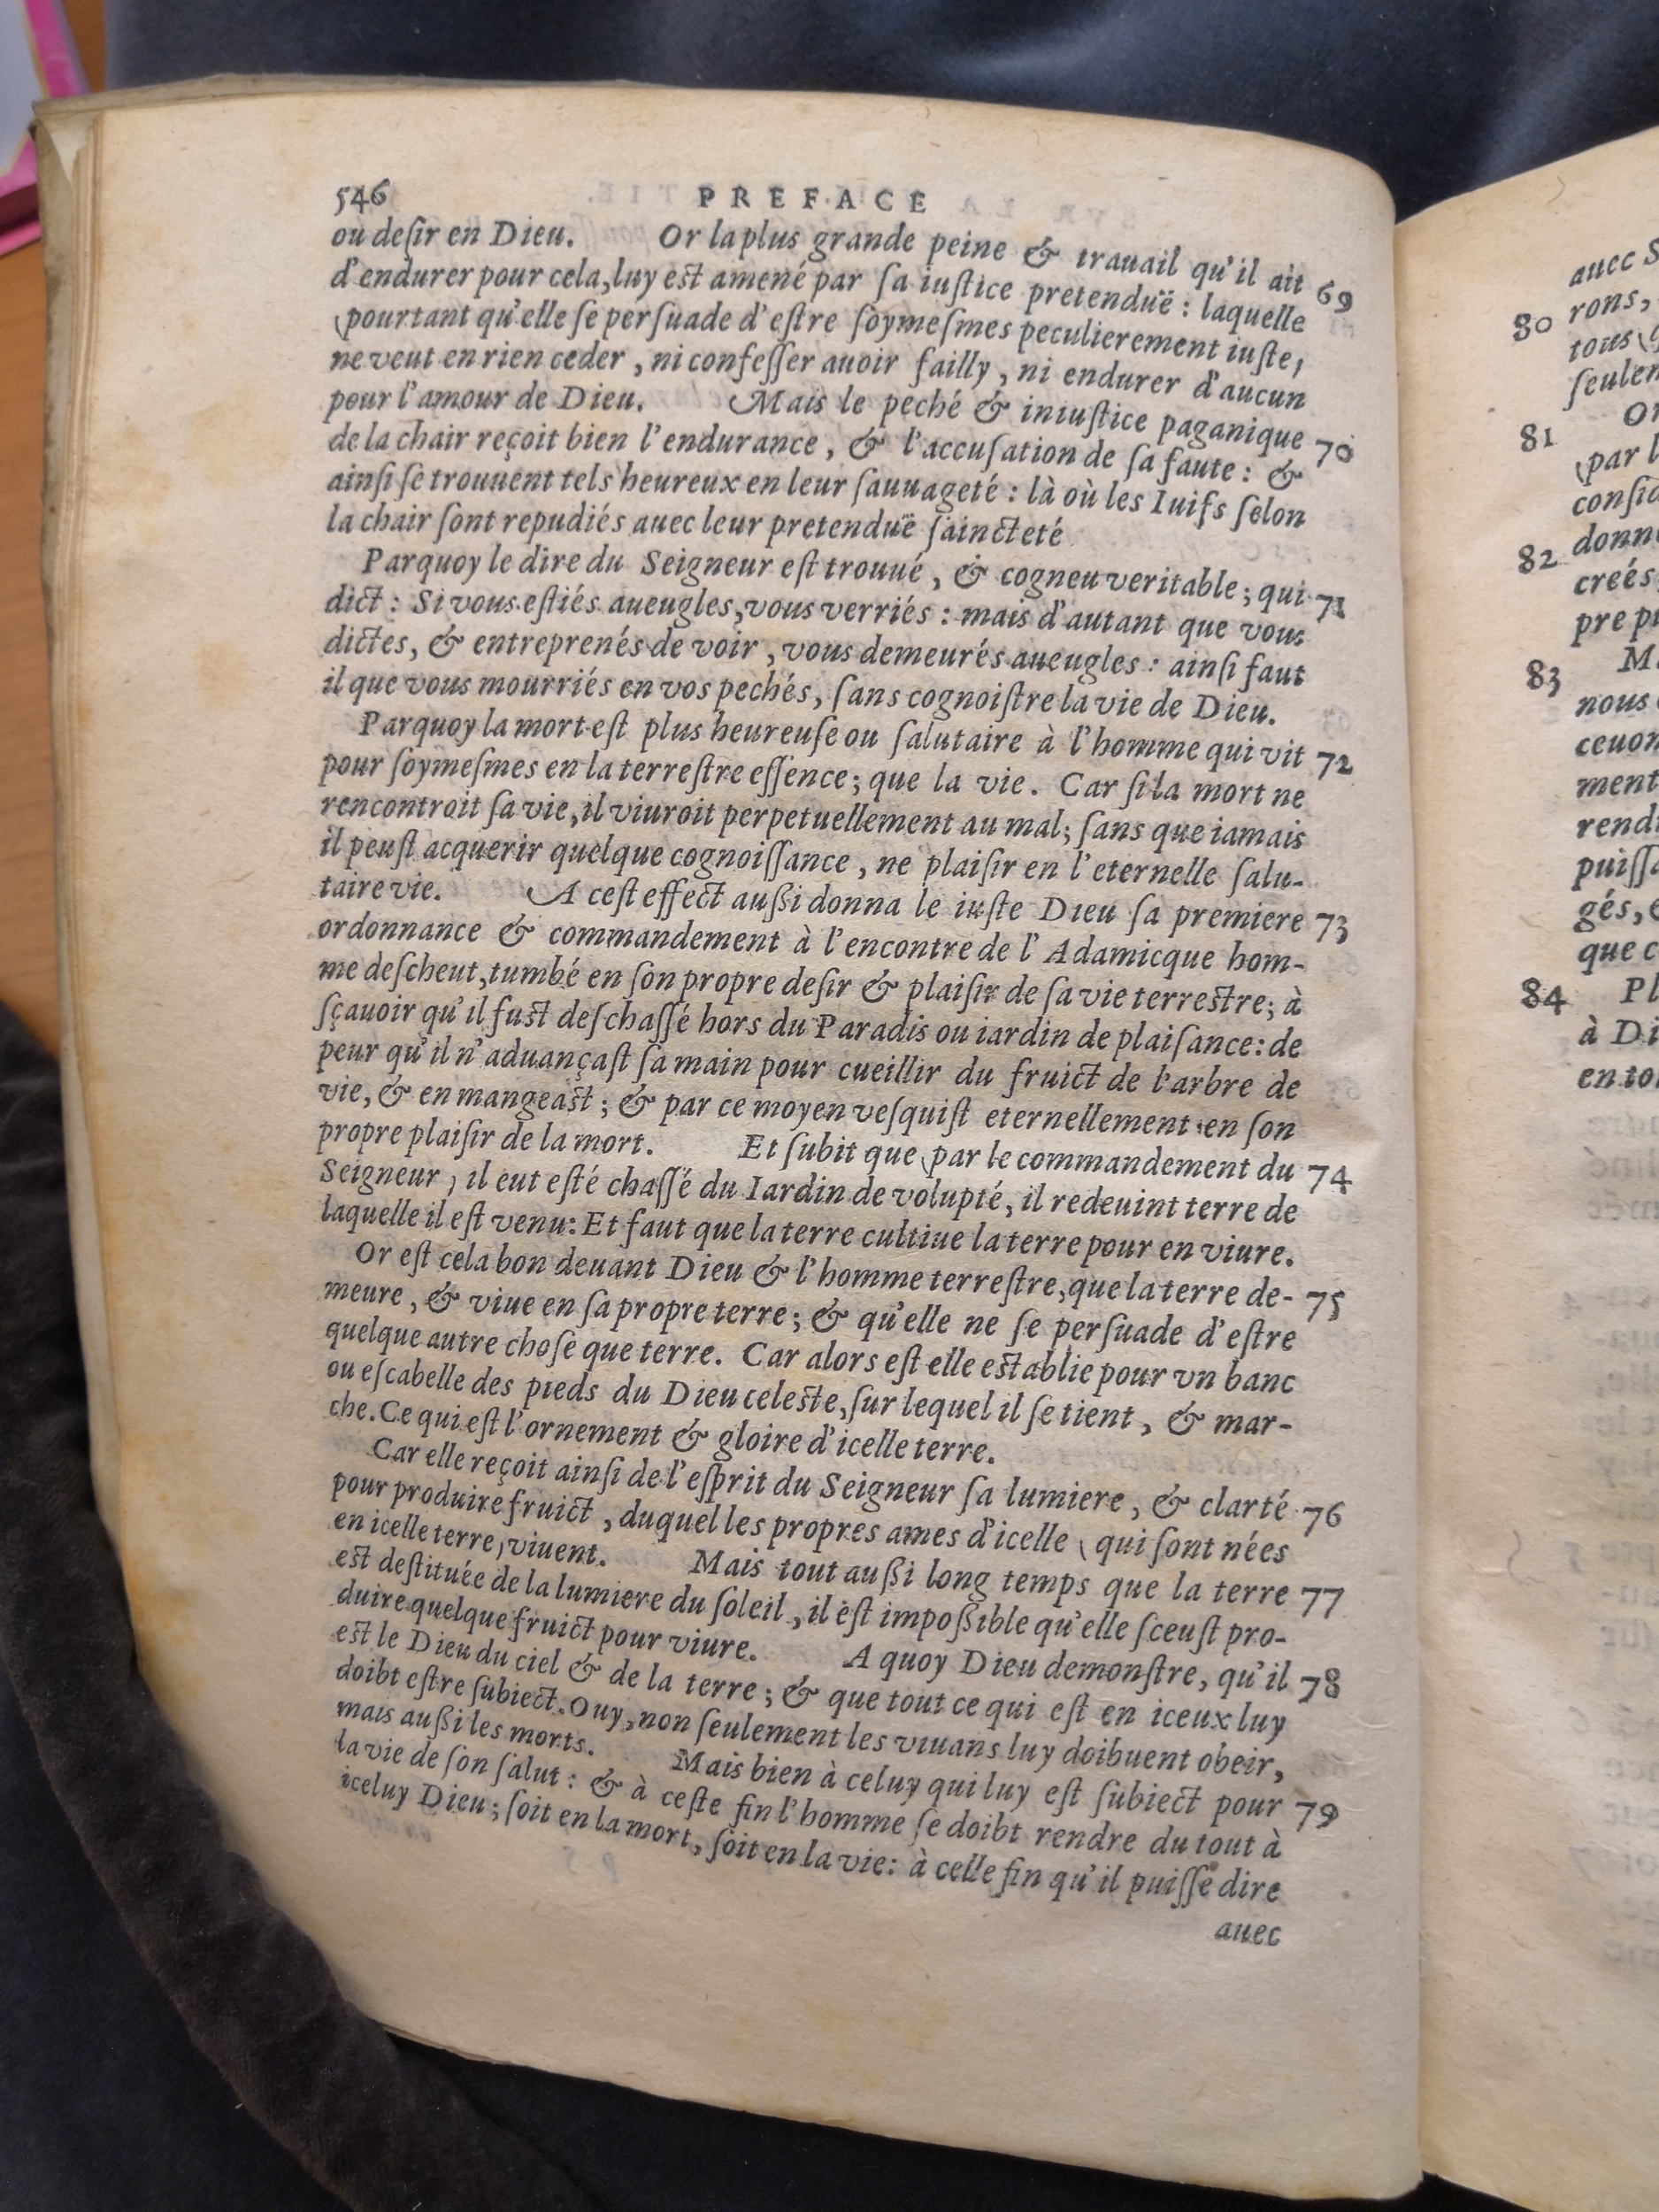 546 PREFACE
ou deſir en Dieu. Or la plus grande peine & trauail qu'il ait 69
d'endurer pour cela, luy est amené par ſa iuſtice pretenduë: laquelle
(pourtant qu'elle ſe perſuade d'eſtre ſoymeſmes peculierement iuſte,
ne veut en rien ceder, ni confeſſer auoir failly, ni endurer d'aucun
pour l'amour de Dieu. Mais le peché & iniuſtice paganique 70
de la chair reçoit bien l'endurance, & l'accuſation de ſa faute: &
ainſi ſe trouuent tels heureux en leur ſauuageté: là où les Iuifs ſelon
la chair ſont repudiés auec leur pretenduë ſaincteté
Parquoy le dire du Seigneur eſt trouué, & cogneu veritable; qui 71
dict: Si vous eſtiés aueugles, vous verriés: mais d'autant que vous
dictes, & entreprenés de voir, vous demeurés aueugles: ainſi faut
il que vous mourriés en vos pechés, ſans cognoiſtre la vie de Dieu.
Parquoy la mort eſt plus heureuſe ou ſalutaire à l'homme qui vit 72
pour ſoymeſmes en la terreſtre eſſence; que la vie. Car ſi la mort ne
rencontroit ſa vie, il viuroit perpetuellement au mal; ſans que iamais
il peuſt acquerir quelque cognoiſſance, ne plaiſir en l'eternelle ſalu-
taire vie. A ceſt effect außi donna le iuſte Dieu ſa premiere 73
ordonnance & commandement à l'encontre de l'Adamicque hom-
me deſcheut, tumbé en ſon propre deſir & plaiſir de ſa vie terrestre; à
ſçauoir qu'il fust deſchaſſé hors du Paradis ou iardin de plaiſance: de
peur qu'il n'aduançaſt ſa main pour cueillir du fruict de l'arbre de
vie, & en mangeast; & par ce moyen veſquiſt eternellement en ſon
propre plaiſir de la mort. Et ſubit que (par le commandement du 74
Seigneur) il eut eſté chaſſé du Iardin de volupté, il redeuint terre de
laquelle il eſt venu: Et faut que la terre cultiue la terre pour en viure.
Or eſt cela bon deuant Dieu & l'homme terreſtre, que la terre de- 75
meure, & viue en ſa propre terre; & qu'elle ne ſe perſuade d'eſtre
quelque autre choſe que terre. Car alors eſt elle establie pour vn banc
ou eſcabelle des pieds du Dieu celeste, ſur lequel il ſe tient, & mar-
che. Ce qui eſt l'ornement & gloire d'icelle terre.
Car elle reçoit ainſi de l'eſprit du Seigneur ſa lumiere, & clarté 76
pour produire fruict, duquel les propres ames d'icelle (qui ſont nées
en icelle terre) viuent. Mais tout außi long temps que la terre 77
est deſtituée de la lumiere du ſoleil, il est impoßible qu'elle ſceuſt pro-
duire quelque fruict pour viure. A quoy Dieu demonſtre, qu'il 78
est le Dieu du ciel & de la terre; & que tout ce qui eſt en iceux luy
doibt eſtre ſubiect. Ouy, non ſeulement les viuans luy doibuent obeir,
mais außi les morts. Mais bien à celuy qui luy eſt ſubiect pour 79
la vie de ſon ſalut: & à ceſte fin l'homme ſe doibt rendre du tout à
iceluy Dieu; ſoit en la mort, ſoit en la vie: à celle fin qu'il puiſſe dire
auec
auec
80 rons,
tous
ſeulem
81
(par l
conſid
82 donn
creés
pre p
83
nous
ceuon
ment
rend
puiſſ
gés,
que c
84 Pl
à Di
en to